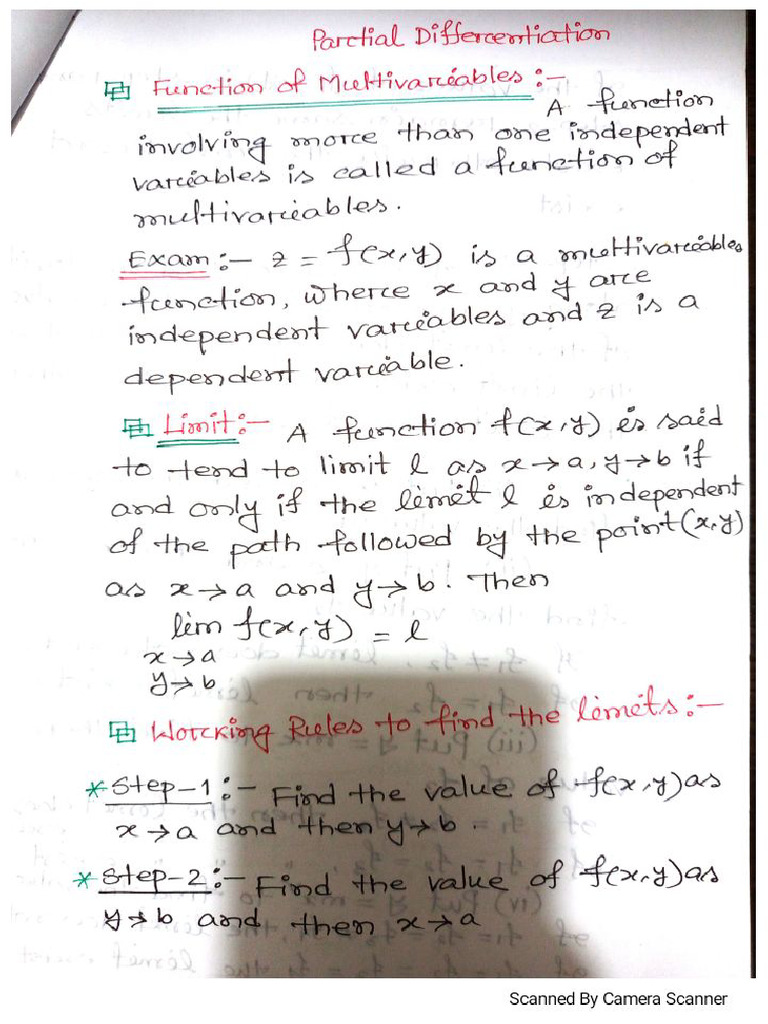 Partial Differentiation
Function of Multivariables :-
A function
involving more than one independent
variables is called a function of
multivariables.
Exam :- z = f(x,y) is a multivariables
function, where x and y are
independent variables and z is a
dependent variable.
Limit :- A function f(x,y) is said
to tend to limit l as x→a, y→b if
and only if the limit l is independent
of the path followed by the point (x,y)
as x→a and y→b. Then
lim f(x,y) = l
x→a
y→b
Working Rules to find the limits :-
* Step-1 :- Find the value of f(x,y) as
x→a and then y→b.
* Step-2 :- Find the value of f(x,y) as
y→b and then x→a
Scanned By Camera Scanner